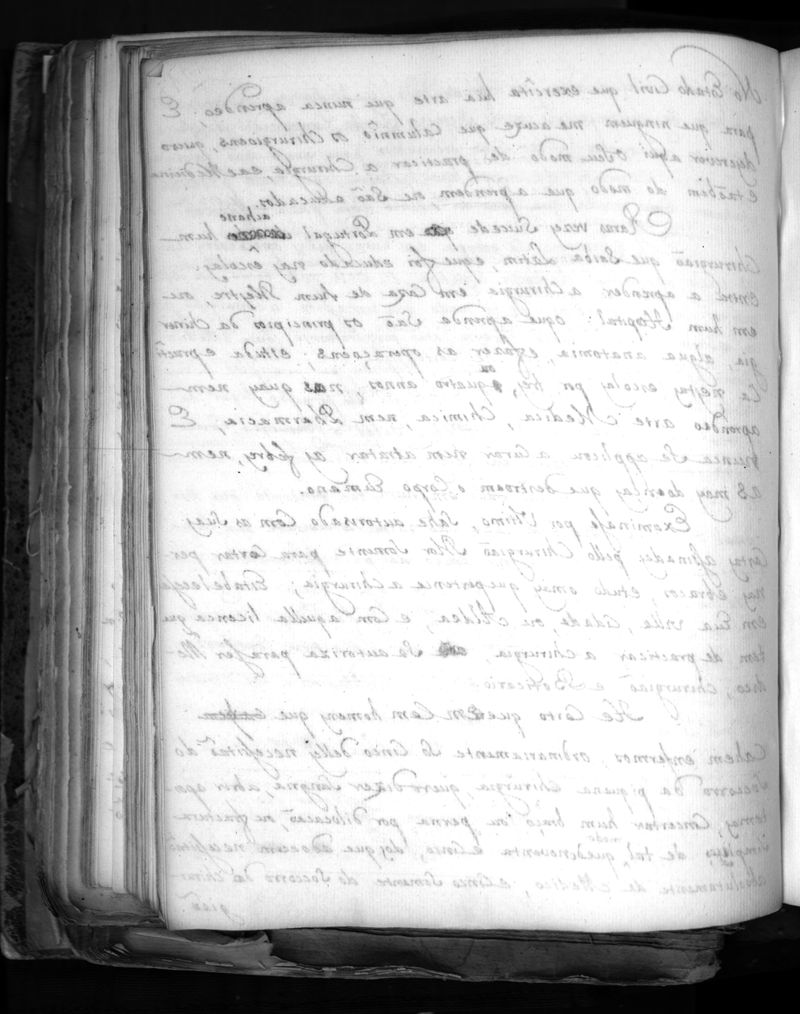 No Estado Civil que exercita hua arte que nunca aprendeo; E
para que ninguem me acuze que Calumnio os Chirurgioens quero
descrever aqui o seu modo de practicar a Chirurgia e a Medicina
e tãobem do modo que aprendem, ou são educados.
Raras vezes Sucede em Portugal achar-se hum
Chirurgião que Saiba Latim, e que foi educado nas escolas.
Entra a aprender a Chirurgia em Caza de hum Mestre, ou
em hum Hospital: o que aprende São os principios da Chirur
gia algua anatomia, e fazer as operaçoens; estuda e practi
ca nestas escolas por tres, ou quatro annos, nas quaes nem
aprendeo arte Medica, Chimica, nem Pharmacia, E
nunca Se applicou a Curar nem a tratar as febres, nem,
as mays doenças que destroem o Corpo humano.
Examinase por Ultimo, Sahe autorisado Com as Suas
Cartas assinadas pello Chirurgião Mor Somente para Cortar per
nas, e braços, e tudo o mays que pertence a Chirurgia; Estabelecese
em Sua villa, Cidade, ou Aldea, e Com aquella licença que
tem de practicar a Chirurgia, Se autoriza para ser Me-
dico, Chirurgião e Boticario.
He Certo que em Cem homens que
Cahem enfermos, ordinariamente So Cinco delles necessitão do
Soccorro da piquena Chirurgia, quero dizer Sangria, abrir apos
temas, Concertar hum braço ou perna por dislocação, ou fractura
simples; de tal modo que de noventa e Cinco, dos que adoecem necessitão
absolutamente de Medico, e Cinco Somente do Soccorro do Chirur
gião.